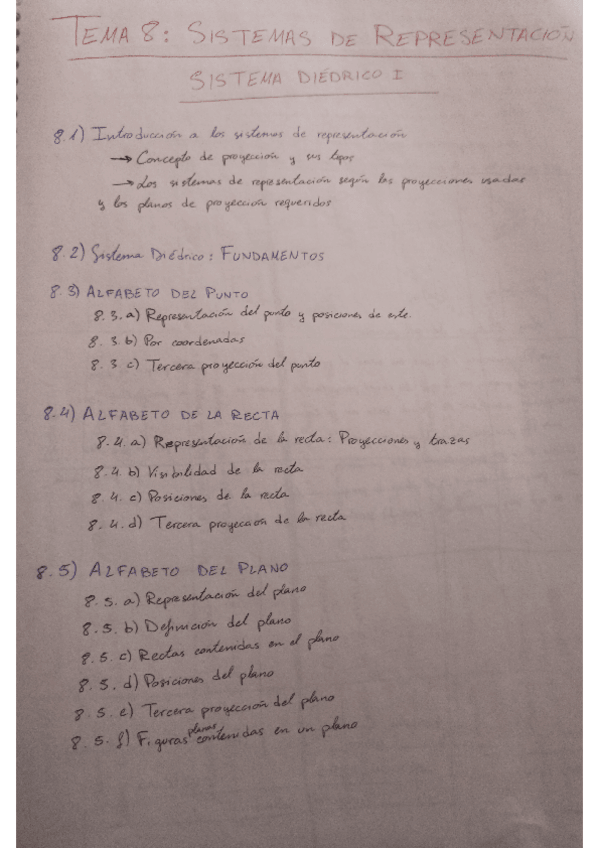 TEMA 8: SISTEMAS DE REPRESENTACIÓN
SISTEMA DIÉDRICO I
8.1) Introducción a los sistemas de representación
→ Concepto de proyección y sus tipos
→ Los sistemas de representación según las proyecciones usadas
y los planos de proyección requeridos
8.2) Sistema Diédrico: FUNDAMENTOS
8.3) ALFABETO DEL PUNTO
8.3.a) Representación del punto y posiciones de este.
8.3.b) Por coordenadas
8.3 c) Tercera proyección del punto
8.4) ALFABETO DE LA RECTA
8.4.a) Representación de la recta: Proyecciones y trazas
8.4.b) Visibilidad de la recta
8.4.c) Posiciones de la recta
8.4.d) Tercera proyección de la recta
8.5) ALFABETO DEL PLANO
8.5.a) Representación del plano
8.5.b) Definición del plano
8.5.c) Rectas contenidas en el plano
8.5.d) Posiciones del plano
8.5.e) Tercera proyección del plano
8.5.f) Figuras planas contenidas en un plano